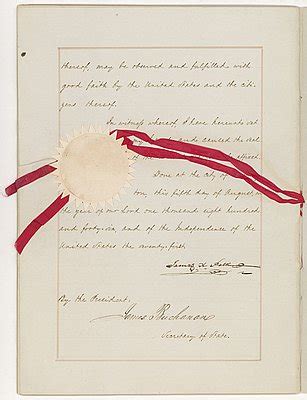 thereof, may be observed and fulfilled with
good faith by the United States and the citi-
zens thereof.
In witness whereof I have hereunto set
hand caused the seal
affixed.
Done at the city of
ton, this fifth day of August, in
the year of our Lord one thousand eight hundred
and forty-six, and of the Independence of the
United States the seventy-first.
James K. Polk
By the President:
James Buchanan
Secretary of State.